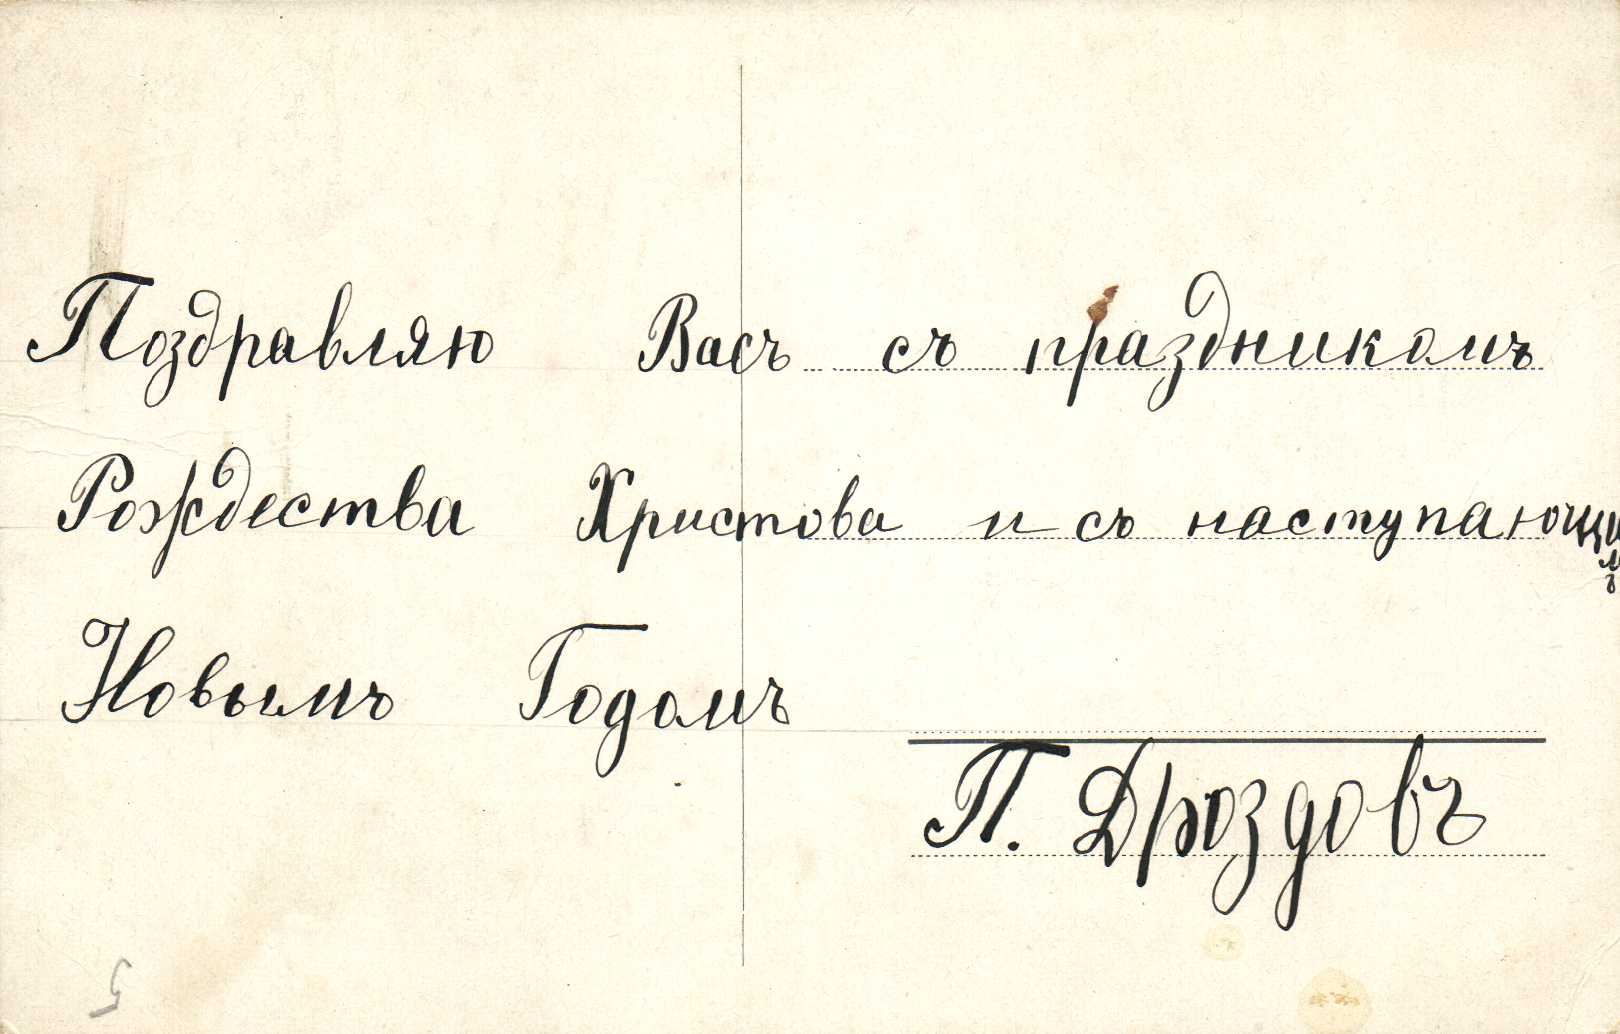 Поздравляю Васъ съ праздникомъ
Рождества Христова и съ наступающимъ
Новымъ Годомъ
П. Дроздовъ
5